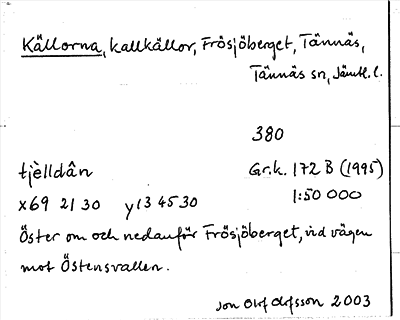 Källorna, kallkällor, Frösjöberget, Tännäs,
Tännäs sn, Jämtl. l.
380
tjèlldân
Gr.k. 172 B (1995)
x69 21 30 y13 45 30
1:50 000
Öster om och nedanför Frösjöberget, vid vägen
mot Östensvallen.
Jon Olof Olofsson 2003